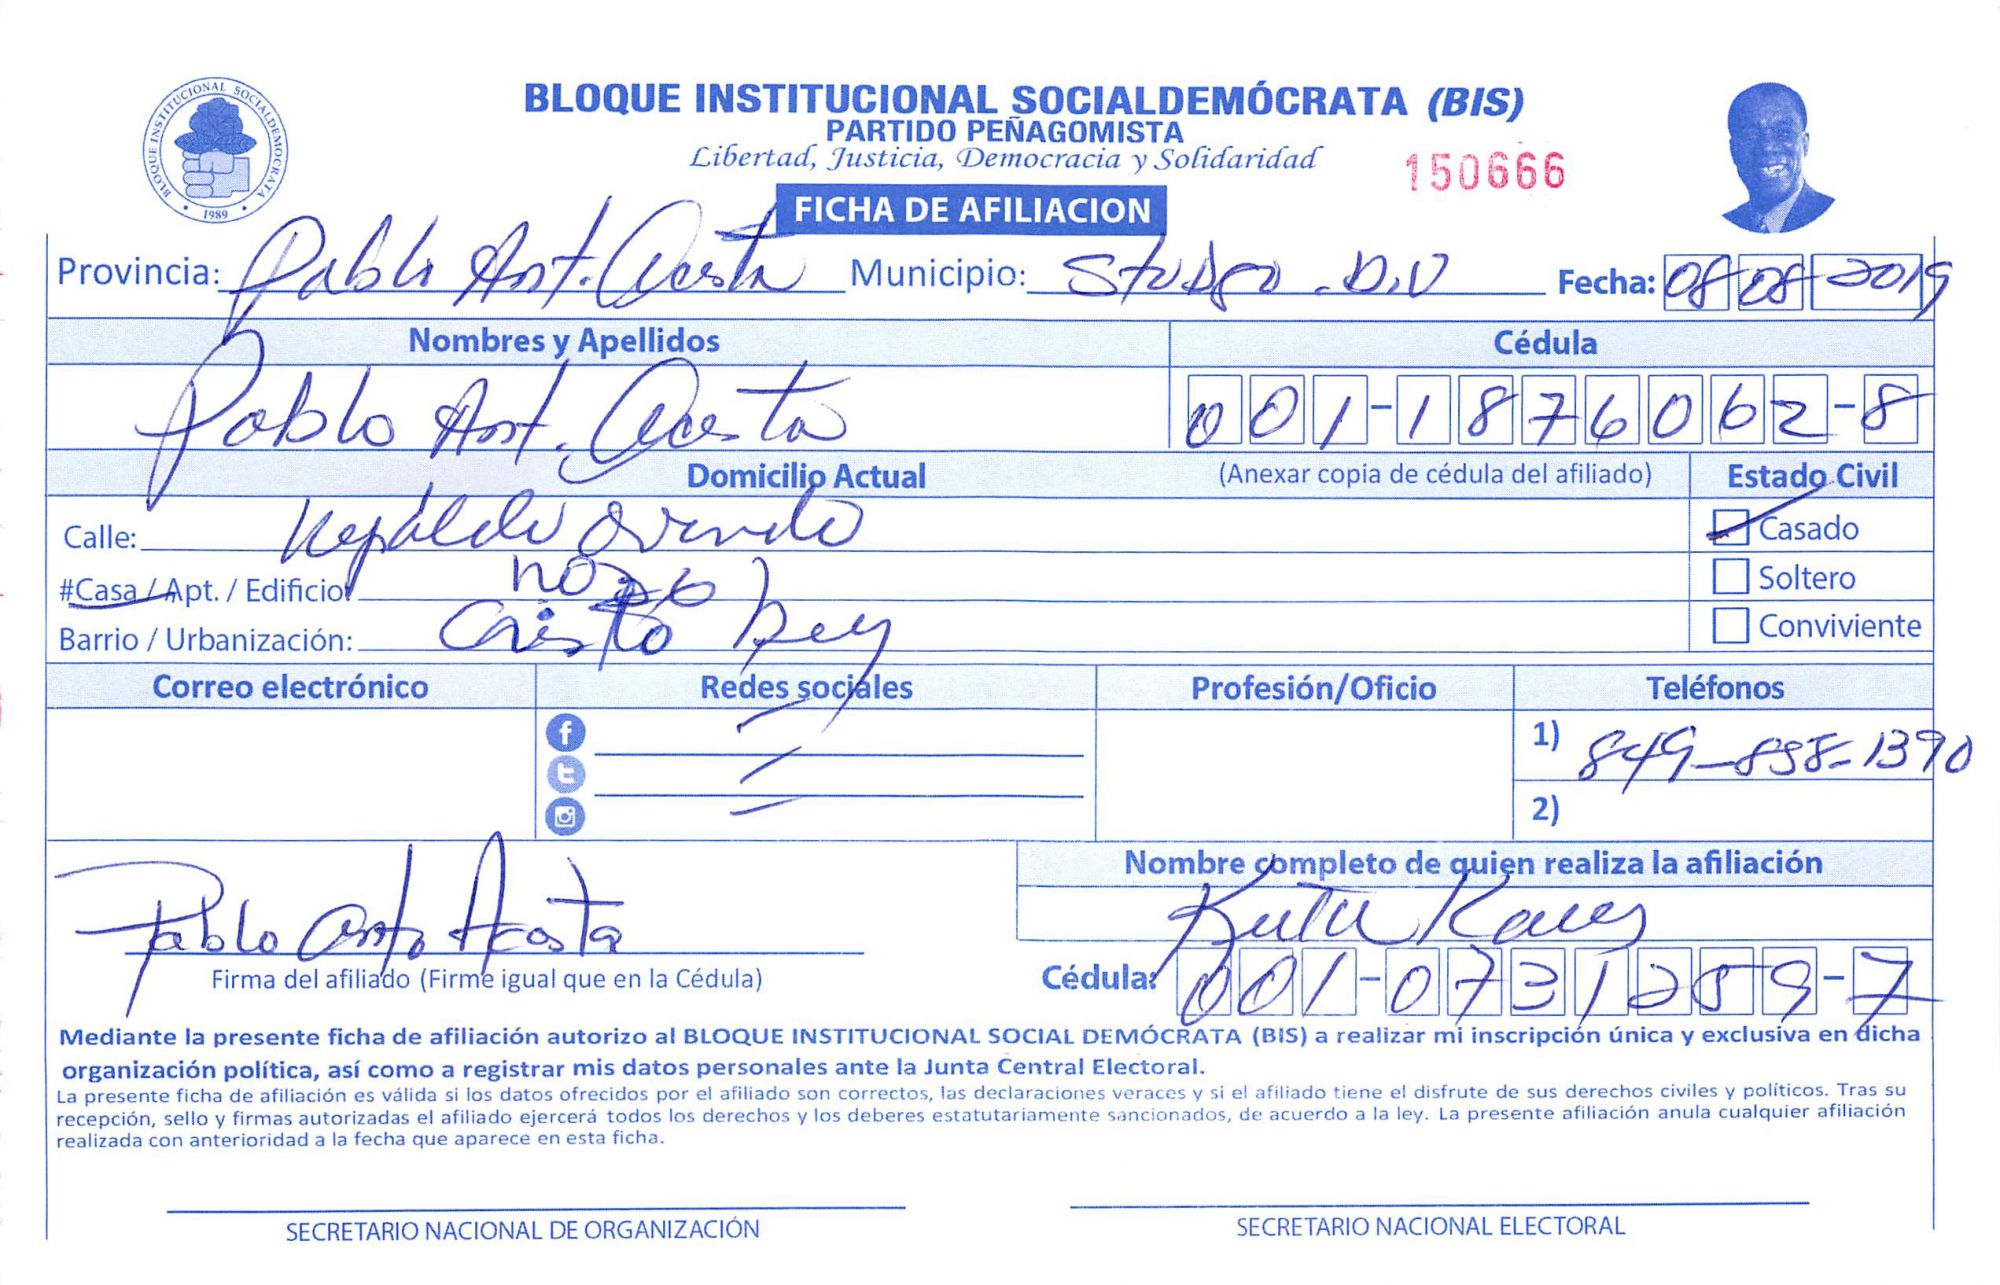 BLOQUE INSTITUCIONAL SOCIALDEMÓCRATA
1989
BLOQUE INSTITUCIONAL SOCIALDEMÓCRATA (BIS)
PARTIDO PEÑAGOMISTA
Libertad, Justicia, Democracia y Solidaridad
150666
FICHA DE AFILIACION
Provincia: Pablo Ant. Acosta Municipio: Fecha: 08 08 2019
Nombres y Apellidos Cédula
Pablo Ant. Acosta 001-1876062-8
Domicilio Actual (Anexar copia de cédula del afiliado) Estado Civil
Calle: Casado
#Casa / Apt. / Edificio Soltero
Barrio / Urbanización: Cristo Rey Conviviente
Correo electrónico Redes sociales Profesión/Oficio Teléfonos
1) 849-858-1390
2)
Nombre completo de quien realiza la afiliación
Pablo Anto Acosta
Firma del afiliado (Firme igual que en la Cédula) Cédula: 001-0731259-7
Mediante la presente ficha de afiliación autorizo al BLOQUE INSTITUCIONAL SOCIAL DEMÓCRATA (BIS) a realizar mi inscripción única y exclusiva en dicha
organización política, así como a registrar mis datos personales ante la Junta Central Electoral.
La presente ficha de afiliación es válida si los datos ofrecidos por el afiliado son correctos, las declaraciones veraces y si el afiliado tiene el disfrute de sus derechos civiles y políticos. Tras su
recepción, sello y firmas autorizadas el afiliado ejercerá todos los derechos y los deberes estatutariamente sancionados, de acuerdo a la ley. La presente afiliación anula cualquier afiliación
realizada con anterioridad a la fecha que aparece en esta ficha.
SECRETARIO NACIONAL DE ORGANIZACIÓN SECRETARIO NACIONAL ELECTORAL